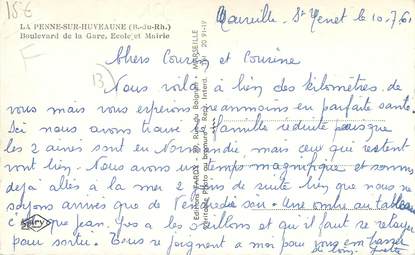 15€
LA PENNE-SUR-HUVEAUNE (B.-du-Rh.)
Boulevard de la Gare, Ecole et Mairie
Marseille St Menet le 10.7.61
Chers Cousin et Cousine
Nous voilà à bien des kilomètres de
vous mais vous espérons néanmoins en parfaite santé.
Ici nous avons trouvé famille réduite puisque
les 2 aînés sont en Normandie mais ceux qui restent
vont bien. Nous avons un temps magnifique et sommes
déjà allés à la mer 2 de suite bien que nous ne
soyons arrivés que de Vendredi soir. Une ombre au tableau
c'est que Jean-Yves a les oreillons et qu'il faut se relayer
pour sortir. Tous se joignent à moi pour vous embrasser
de tous
Editions TARDY
MARSEILLE
Véritable photo au bromure. Repr. Interd.